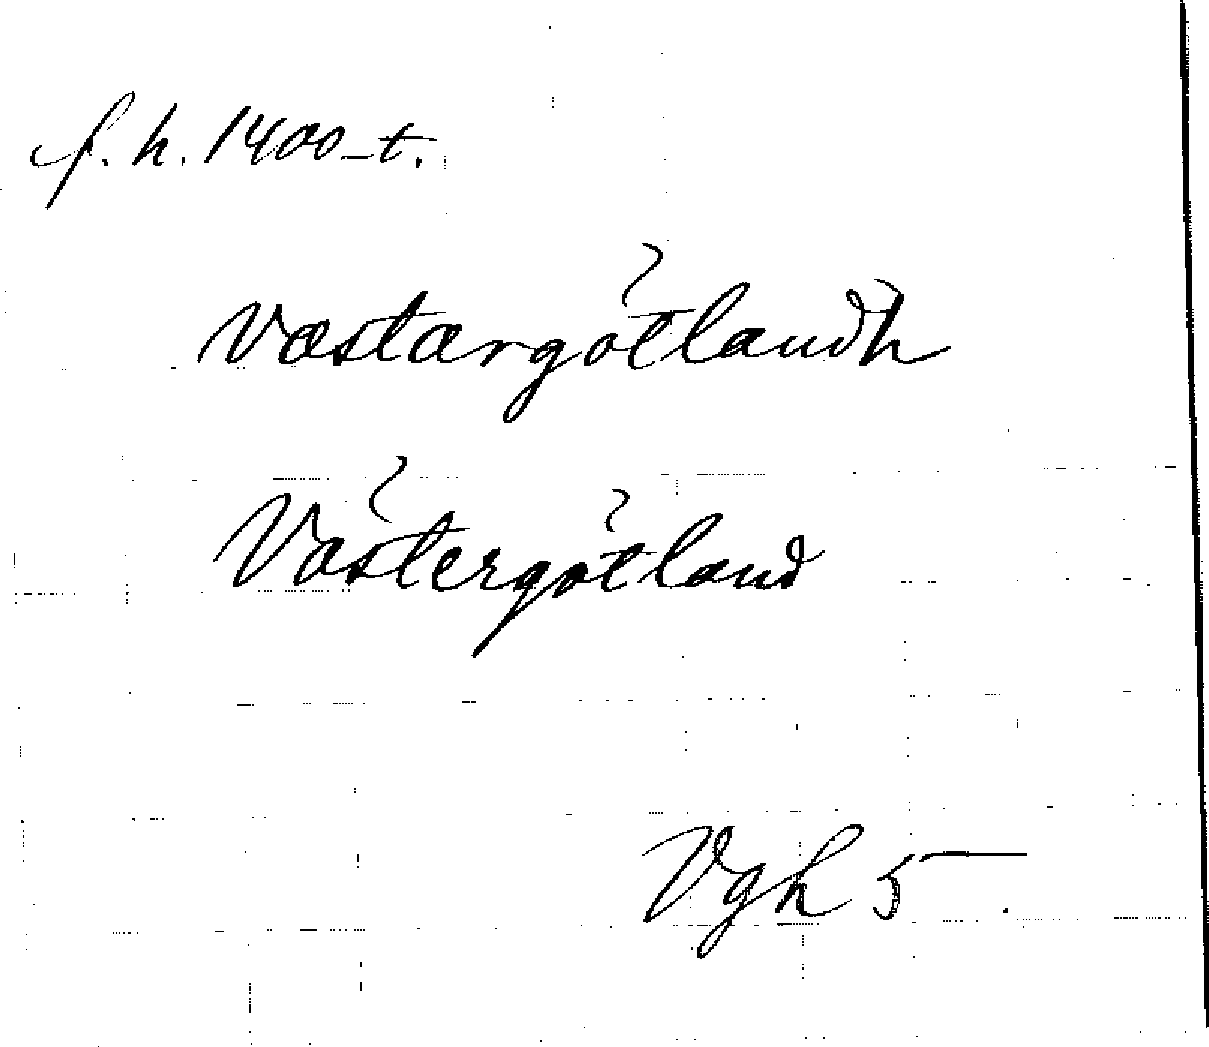 f. h. 1400-t.
væstærgötlandh
Västergötland
Vgh 5